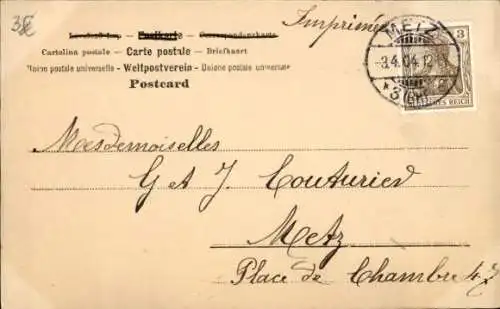 3€
Imprimé
Postkarte Correspondenzkarte
Cartolina postale – Carte postale – Briefkaart
Union postale universelle – Weltpostverein – Unione postale universale
Postcard
METZ
3.4.04. 12
* 3
3
REICH
Mesdemoiselles
G et J Couturier
Metz
Place de Chambre 47